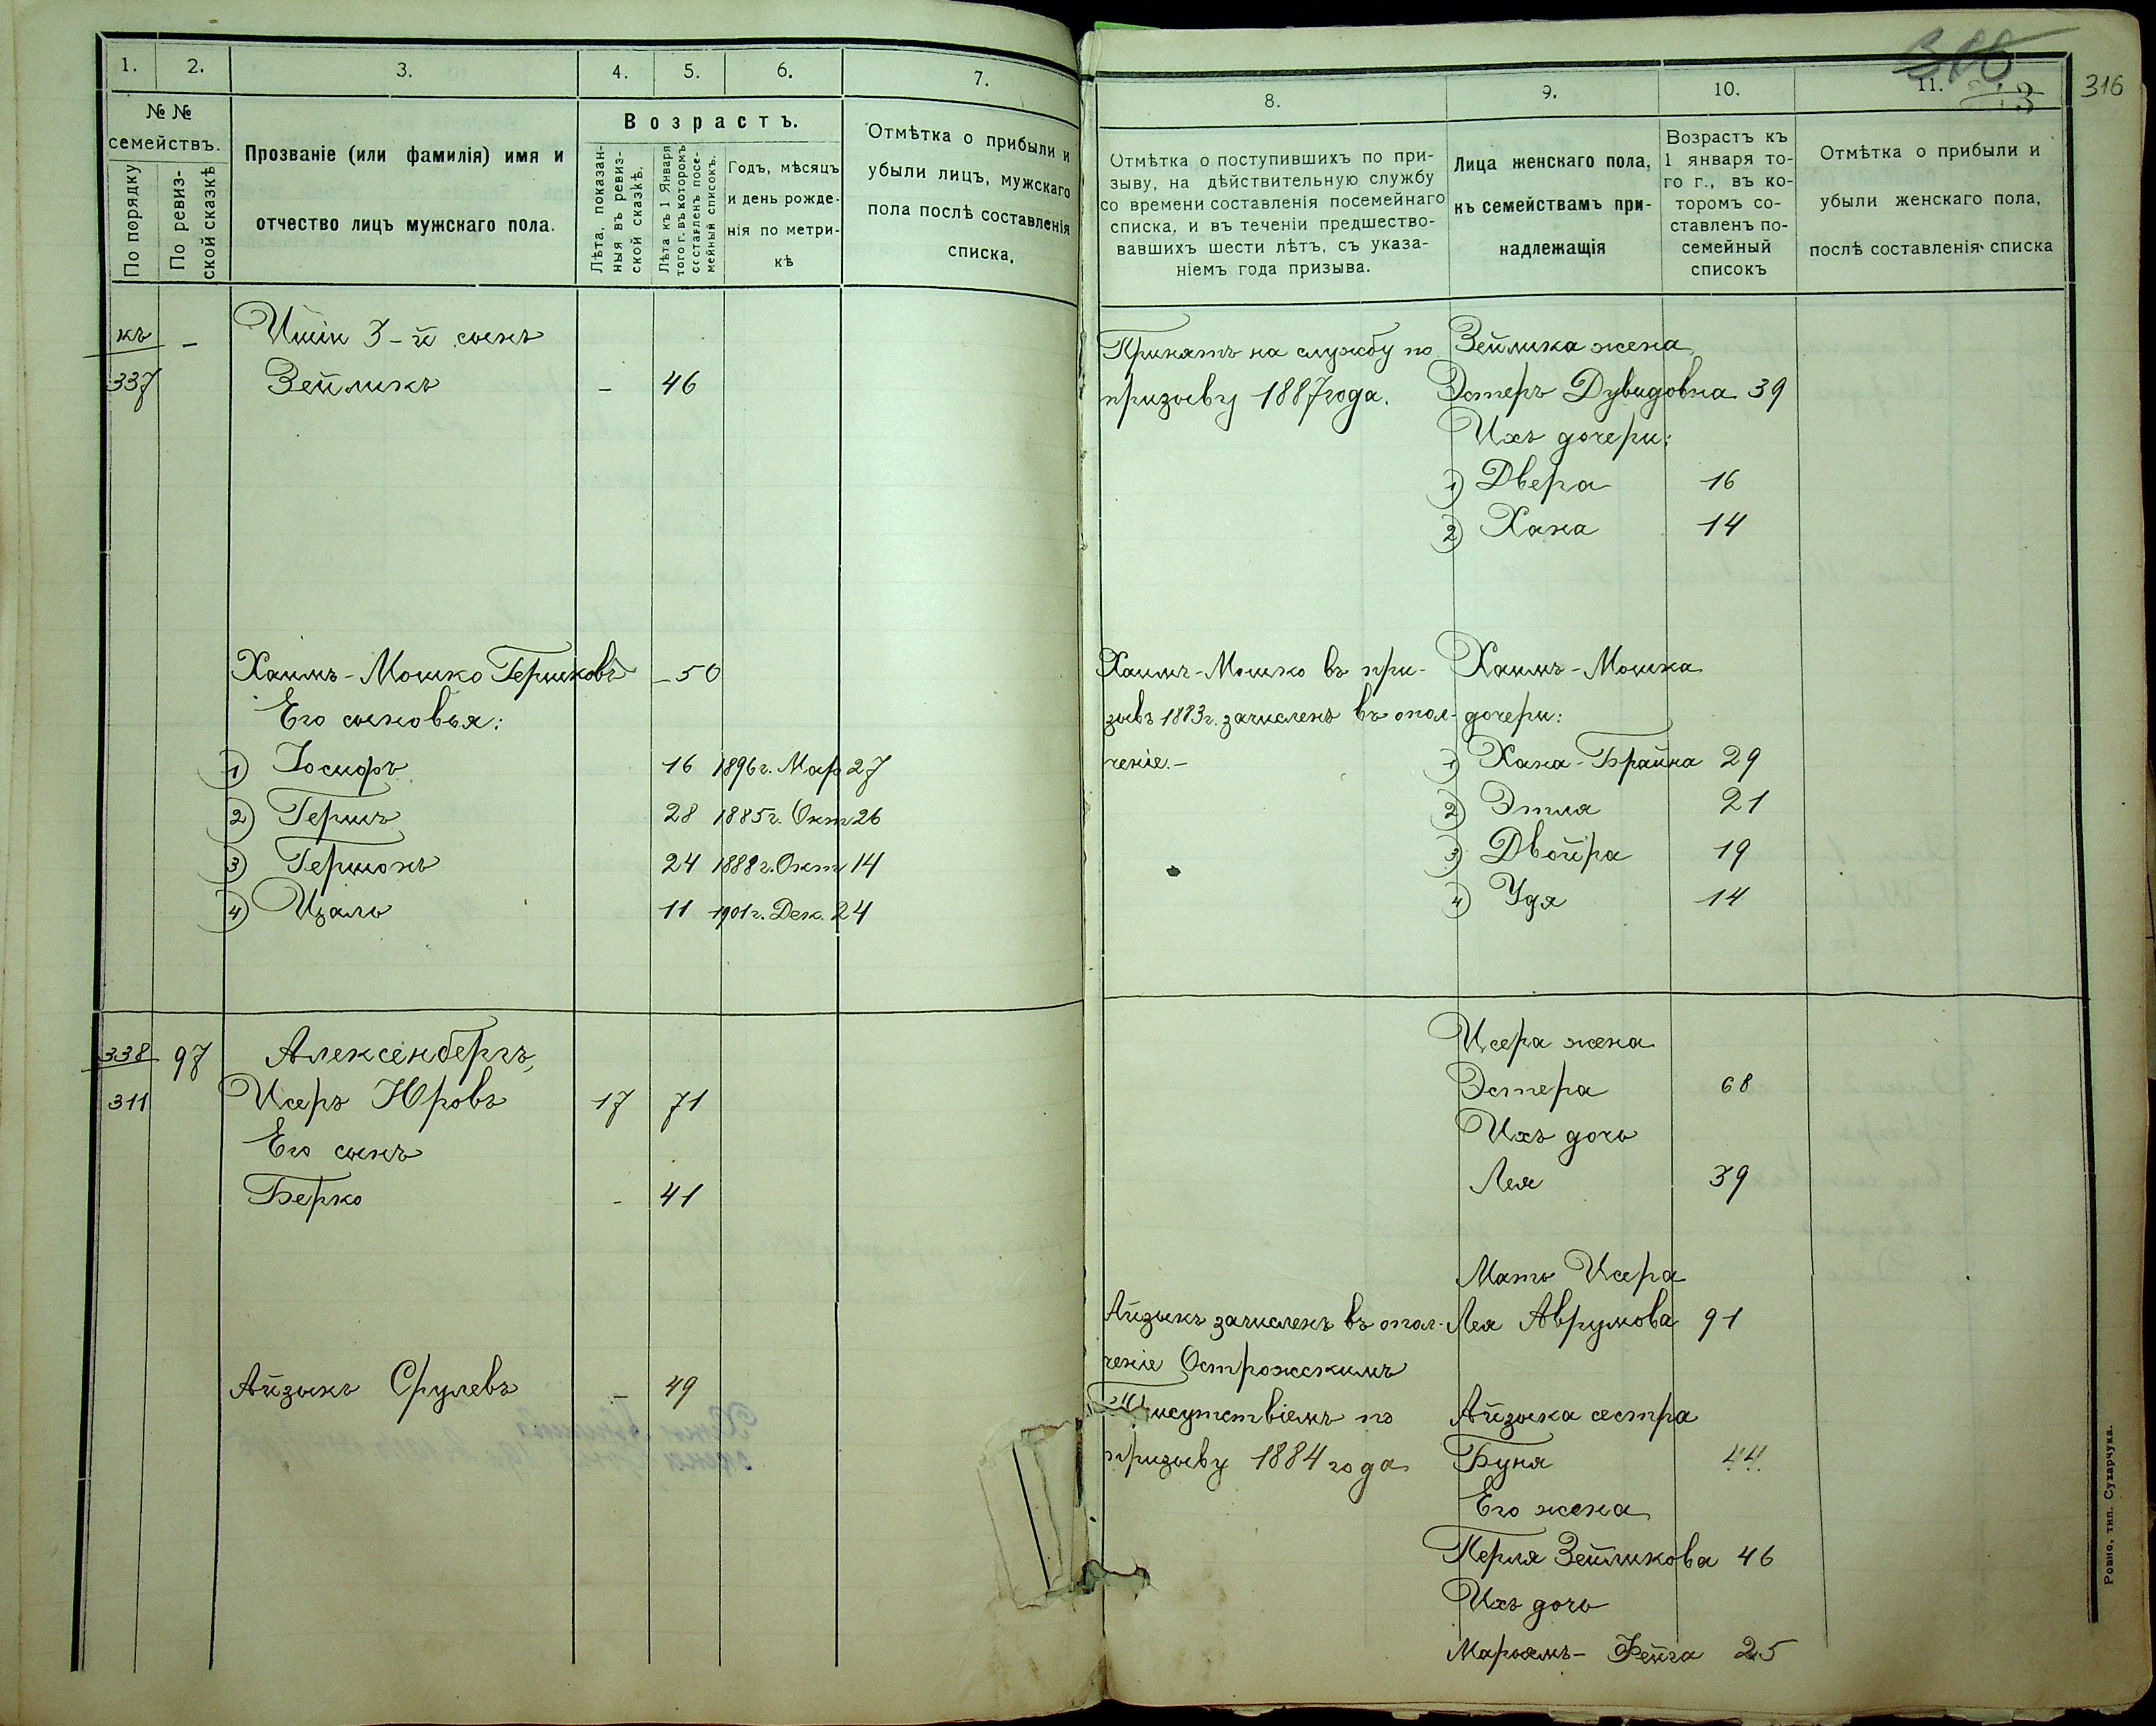 1.
2.
3.
4.
5.
6.
7.
№ №
семействъ.
По порядку
По ревиз-
ской сказкѣ
Прозваніе (или фамилія) имя и
отчество лицъ мужскаго пола.
Возрастъ.
Лѣта, показан-
ныя въ ревиз-
ской сказкѣ.
Лѣта къ 1 Января
того г. въ которомъ
составленъ посе-
мейный списокъ.
Годъ, мѣсяцъ
и день рожде-
нія по метри-
кѣ
Отмѣтка о прибыли и
убыли лицъ, мужскаго
пола послѣ составленія
списка.
къ – Ицик 3-й сынъ
337 Зейликъ – 46
Хаимъ-Мошко Гершковъ – 50
Его сыновья:
1) Іосифъ 16 1896 г. Мар 27
2) Гершъ 28 1885 г. Окт 26
3) Гершонъ 24 1888 г. Окт 14
4) Ицаль 11 1901 г. Дек. 24
338 97 Алексенбергъ,
311 Исеръ Юровъ 17 71
Его сынъ
Берко – 41
Айзыкъ Срулевъ – 49
316
3
8.
9.
10.
11.
Отмѣтка о поступившихъ по при-
зыву, на дѣйствительную службу
со времени составленія посемейнаго
списка, и въ теченіи предшество-
вавшихъ шести лѣтъ, съ указа-
ніемъ года призыва.
Лица женскаго пола,
къ семействамъ при-
надлежащія
Возрастъ къ
1 января то-
го г., въ ко-
торомъ со-
ставленъ по-
семейный
списокъ
Отмѣтка о прибыли и
убыли женскаго пола,
послѣ составленія списка
Принятъ на службу по Зейлика жена
призыву 1887 года. Эстеръ Дувидовна 39
Ихъ дочери:
1) Двера 16
2) Хана 14
Хаимъ-Мошко въ при- Хаимъ-Мошка
зывъ 1883 г. зачисленъ въ опол- дочери:
ченіе.– 1) Хана-Брайна 29
2) Этля 21
3) Двойра 19
4) Удя 14
Исера жена
Эстера 68
Ихъ дочь
Лея 39
Мать Исера
Айзыкъ зачисленъ въ опол- Лея Аврумова 91
ченіе Острожскимъ
Присутствіемъ по Айзыка сестра
призыву 1884 года Буня 44
Его жена
Перля Зейликова 46
Ихъ дочь
Марьямъ-Фейга 25
Ровно, тип. Сухарчука.